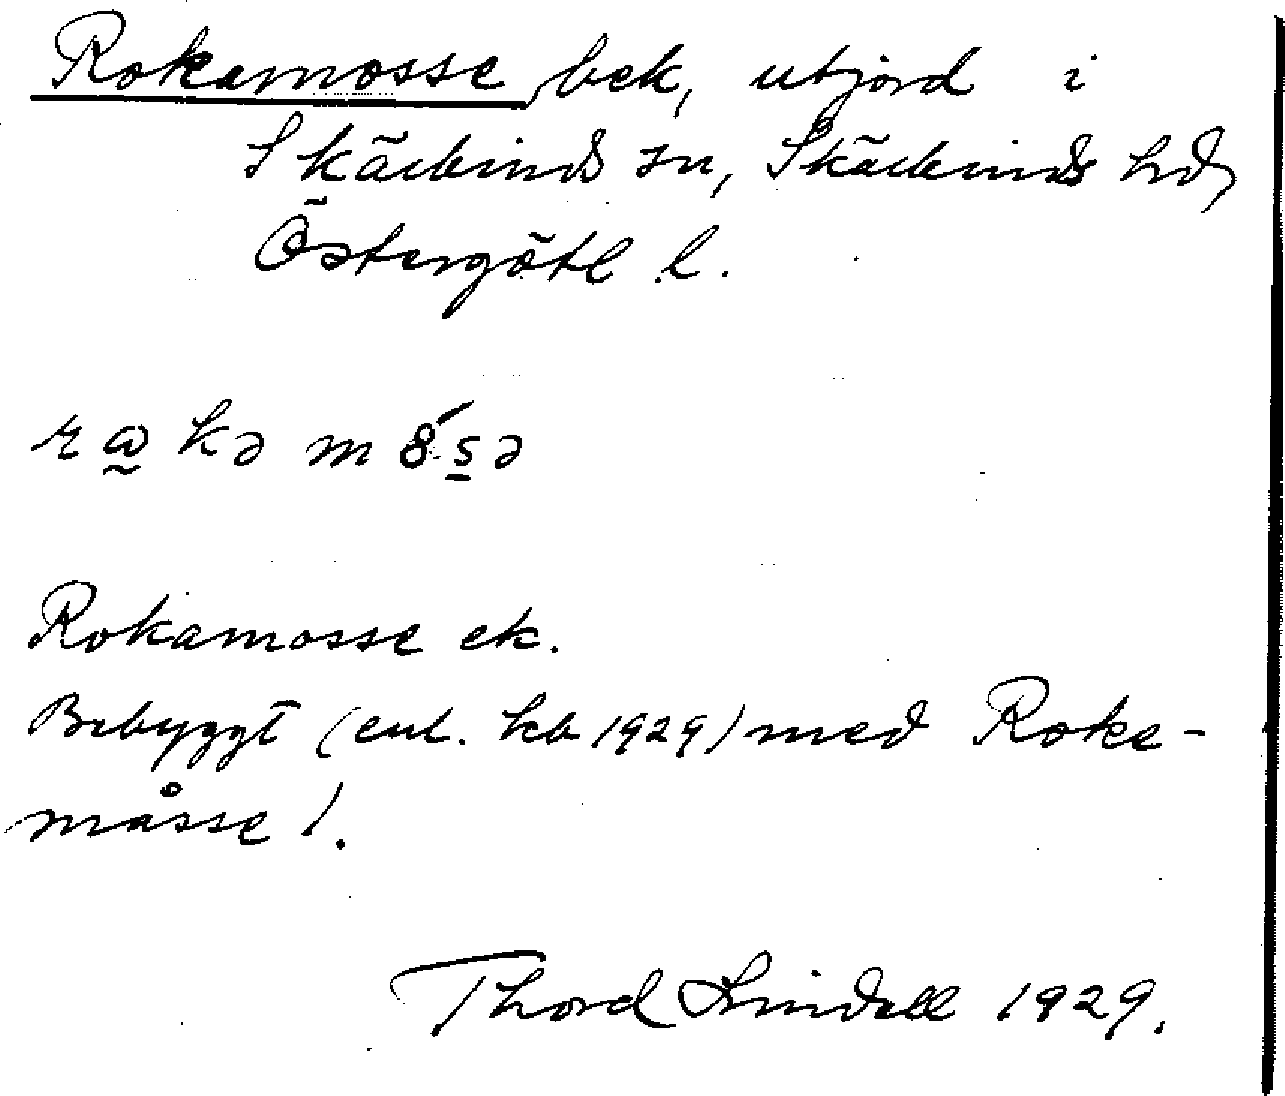 Rokamosse bek, utjord i
Skärkinds sn, Skärkinds hd,
Östergötl l.
Rokamosse ek.
Bebyggt (enl. kb 1929) med Roke-
måsse l.
Thord Lindell 1929.